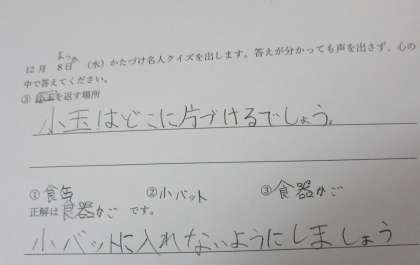 ようか
12月 8日 （水）かたづけ名人クイズを出します。答えが分かっても声を出さず、心の
中で答えてください。
③ を返す場所
小玉はどこに片づけるでしょう。
①食缶 ②小バット ③食器かご
正解は食器かご です。
小バットに入れないようにしましょう